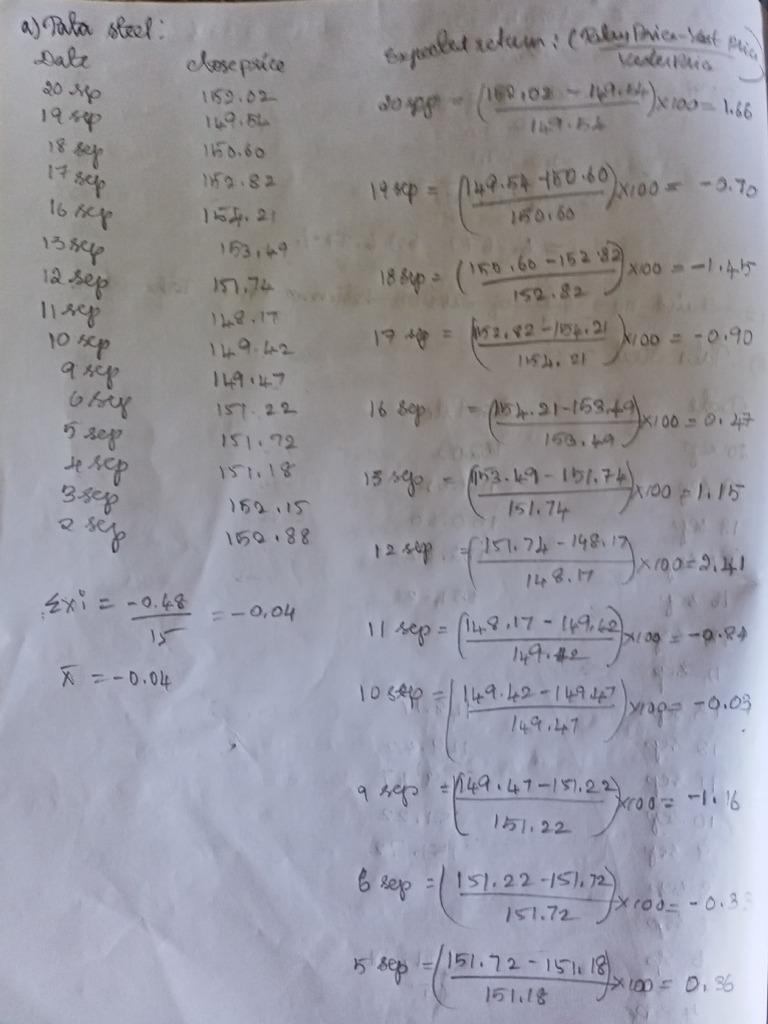 a) Tata steel:
Date close price
20 sep 152.02
19 sep 149.54
18 sep 150.60
17 sep 152.82
16 sep 154.21
13 sep 153.49
12 sep 151.74
11 sep 148.17
10 sep 149.42
9 sep 149.47
6 sep 151.22
5 sep 151.72
4 sep 151.18
3 sep 152.15
2 sep 152.88
Σxi = -0.48 / 15 = -0.04
x̄ = -0.04
Expected return: (Today Price - Last Price /
20 sep = (152.02 - 149.54 / 149.54) x100 = 1.66
19 sep = (149.54 - 150.60 / 150.60) x100 = -0.70
18 sep = (150.60 - 152.82 / 152.82) x100 = -1.45
17 sep = (152.82 - 154.21 / 154.21) x100 = -0.90
16 sep = (154.21 - 153.49 / 153.49) x100 = 0.47
13 sep = (153.49 - 151.74 / 151.74) x100 = 1.15
12 sep = (151.74 - 148.17 / 148.17) x100 = 2.41
11 sep = (148.17 - 149.42 / 149.42) x100 = -0.84
10 sep = (149.42 - 149.47 / 149.47) x100 = -0.03
9 sep = (149.47 - 151.22 / 151.22) x100 = -1.16
6 sep = (151.22 - 151.72 / 151.72) x100 = -0.33
5 sep = (151.72 - 151.18 / 151.18) x100 = 0.36